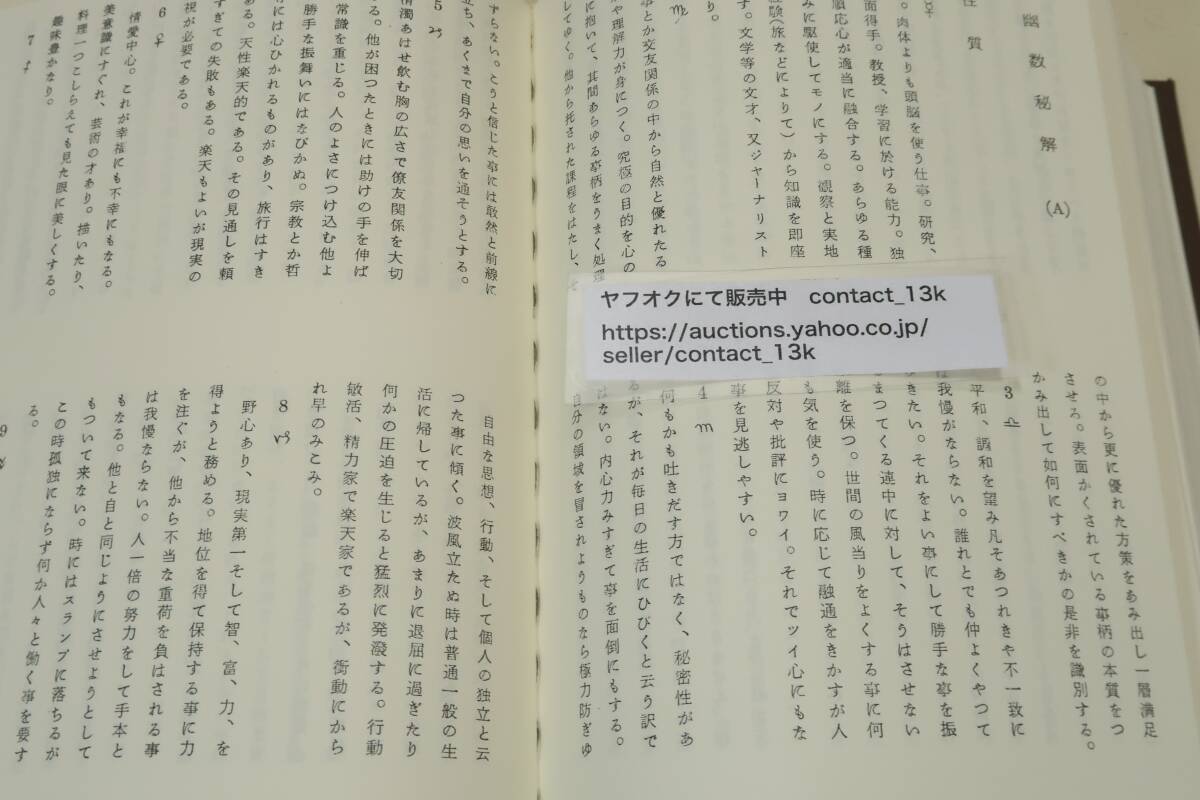 幽数秘解 (A)
性質
☿
。肉体よりも頭脳を使う仕事。研究、
面得手。教授、学習に於ける能力。独
順応心が適当に融合する。あらゆる種
みに駆使してモノにする。観察と実地
経験(旅などによりて)から知識を即座
す。文学等の文才、又ジャーナリスト
り。
♍
事とか交友関係の中から自然と優れたる
や理解力が身につく。究極の目的を心の
に抱いて、其間あらゆる事柄をうまく処理
してゆく。他から托された課程をはたし、そ
ヤフオクにて販売中 contact_13k
https://auctions.yahoo.co.jp/
seller/contact_13k
の中から更に優れた方策をあみ出し一層満足
させろ。表面かくされている事柄の本質をつ
かみ出して如何にすべきかの是非を識別する。
3 ♎
平和、調和を望み凡そあつれきや不一致に
は我慢がならない。誰れとでも仲よくやつて
きたい。それをよい事にして勝手な事を振
まつてくる連中に対して、そうはさせない
離を保つ。世間の風当りをよくする事に何
も気を使う。時に応じて融通をきかすが人
反対や批評にヨワイ。それでツイ心にもな
事を見逃しやすい。
4 ♏
何もかも吐きだす方ではなく、秘密性があ
るが、それが毎日の生活にひびくと云う訳で
はない。内心力みすぎて事を面倒にもする。
自分の領域を冒されようものなら極力防ぎゆ
ずらない。こうと信じた事には敢然と前線に
立ち、あくまで自分の思いを通そうとする。
5 ♃
清濁あはせ飲む胸の広さで僚友関係を大切
る。他が困つたときには助けの手を伸ば
常識を重じる。人のよさにつけ込む他よ
勝手な振舞いにはなびかぬ。宗教とか哲
には心ひかれるものがあり、旅行はすき
る。天性楽天的である。その見通しを頼
すぎての失敗もある。楽天もよいが現実の
視が必要である。
6 ♀
情愛中心。これが幸福にも不幸にもなる。
美意識にすぐれ、芸術の才あり。描いたり、
料理一つこしらえても見た眼に美しくする。
趣味豊かなり。
7
自由な思想、行動、そして個人の独立と云
つた事に傾く。波風立たぬ時は普通一般の生
活に帰しているが、あまりに退屈に過ぎたり
何かの圧迫を生じると猛烈に発溌する。行動
敏活、精力家で楽天家であるが、衝動にから
れ早のみこみ。
8 ♑
野心あり、現実第一そして智、富、力、を
得ようと務める。地位を得て保持する事に力
を注ぐが、他から不当な重荷を負はされる事
は我慢ならない。人一倍の努力をして手本と
もなる。他と自と同じようにさせようとして
もついて来ない。時にはスランプに落ちるが
この時孤独にならず何か人々と働く事を要す
る。
9